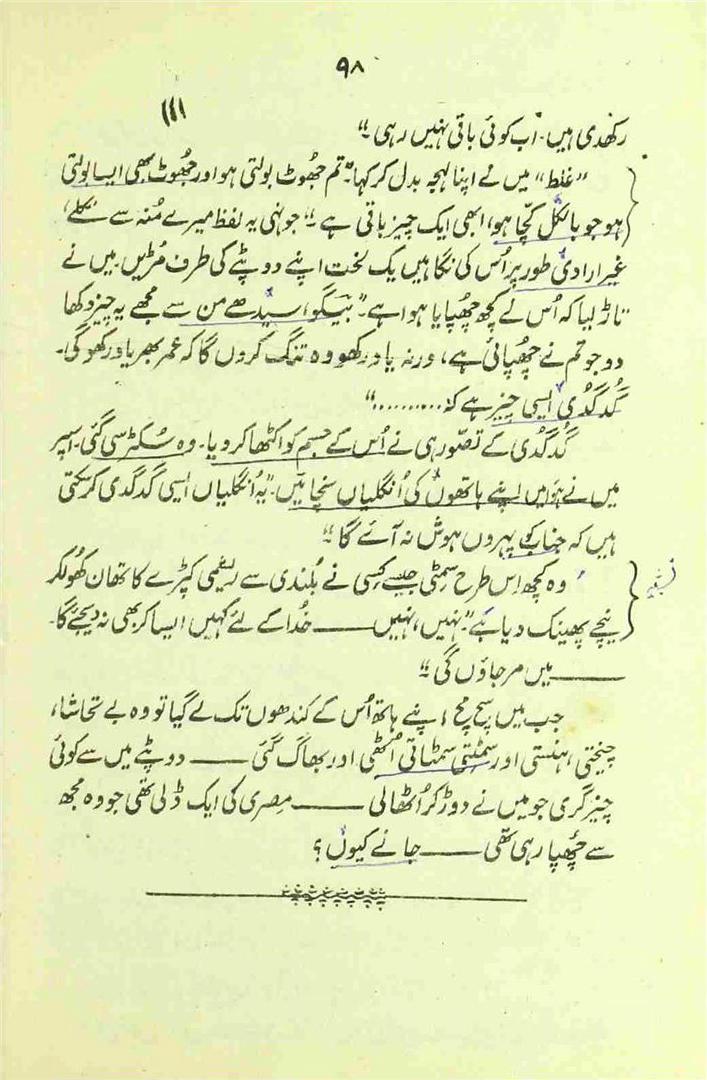 ۹۸
رکھدی ہیں۔ اب کوئی باقی نہیں رہی۔"
"غلط" میں نے اپنا لہجہ بدل کر کہا۔ "تم جھوٹ بولتی ہو اور جھوٹ بھی ایسا بولتی
ہو جو بالکل کچّا ہو، ابھی ایک چیز باقی ہے۔" جونہی یہ لفظ میرے مُنہ سے نکلے،
غیر ارادی طور پر اُس کی نگاہیں یک لخت اپنے دوپٹے کی طرف مُڑیں۔ میں نے
تاڑ لیا کہ اُس نے کچھ چھپایا ہوا ہے۔ "بیگو، سیدھے من سے مجھے یہ چیز دکھا
دو جو تم نے چھپائی ہے، ورنہ یاد رکھو وہ تنگ کروں گا کہ عمر بھر یاد رکھو گی۔
گُدگُدی ایسی چیز ہے کہ .........."
گدگدی کے تصوّر ہی نے اُس کے جسم کو اکٹھا کر دیا۔ وہ سُکڑ سی گئی۔ اسپر
میں نے ہوا میں اپنے ہاتھوں کی اُنگلیاں نچائیں۔ "یہ اُنگلیاں ایسی گدگدی کر سکتی
ہیں کہ جناب کو پہروں ہوش نہ آئے گا۔"
وہ کچھ اِس طرح سِمٹی جیسے کِسی نے بُلندی سے ریشمی کپڑے کا تھان کھولکر
نیچے پھینک دیا ہے۔ "نہیں، نہیں —— خُدا کے لئے کہیں ایسا کر بھی نہ دیجئے گا۔
—— میں مر جاؤں گی۔"
جب میں سچ مچ اپنے ہاتھ اُس کے کندھوں تک لے گیا تو وہ بے تحاشا،
چیختی، ہنستی اور سمٹتی سمٹاتی اُٹھی اور بھاگ گئی —— دوپٹے میں سے کوئی
چیز گری جو میں نے دوڑ کر اُٹھالی —— مِصری کی ایک ڈلی تھی جو وہ مجھ
سے چُھپا رہی تھی —— جانے کیوں؟